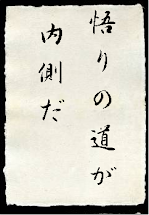 悟りの道が
内側だ